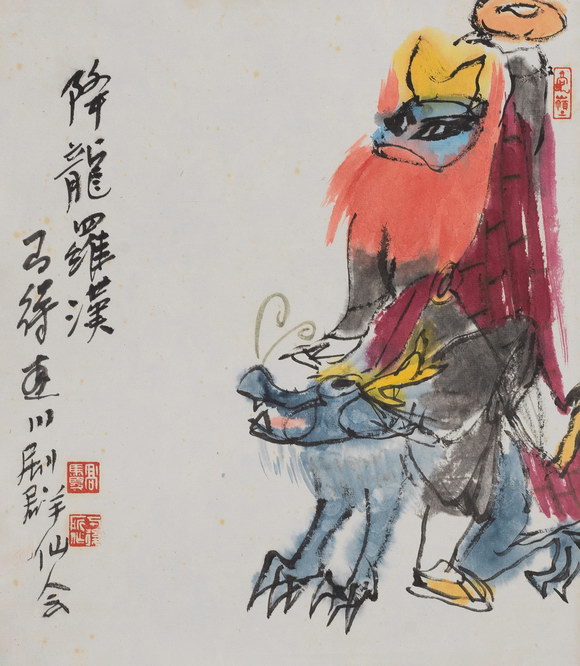 降龍羅漢
马得画川剧群仙会